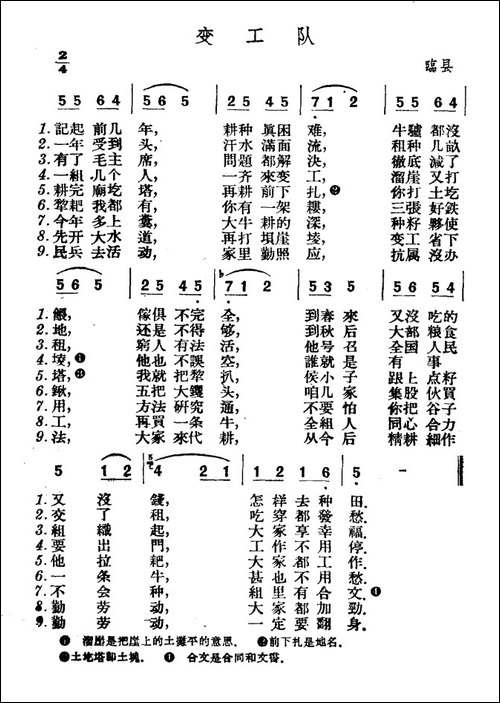 变工队
2/4
臨县
5 5 6 4 | 5 6 5 | 2 5 4 5 | 7 1 2 | 5 5 6 4
1. 記起前几年, 耕种眞困难, 牛驢都沒
2. 一年受到头, 汗水滿面流, 租种几畝
3. 有了毛主席, 問題都解決, 徹底減了
4. 一組几个人, 一齐來变工, 溜崖又打
5. 耕完廟圪塔, 再耕前下扎,❷ 你打土圪
6. 犁耙我都有, 你有一架耬, 三張好鉄
7. 今年多上糞, 大牛耕的深, 种籽夠使
8. 先开大水道, 再打垻崖堎, 变工省下
9. 民兵去活动, 家里勤照应, 抗属沒办
5 6 5 | 2 5 4 5 | 7 1 2 | 5 1 2 1 | 5 2 4 5
1. 餵, 傢俱不完全, 到春來又沒吃的
2. 地, 还是不得够, 到秋后大都粮食
3. 租, 窮人有法活, 他号召全国人民
4. 堎,❶ 他也不誤空, 誰是就是有事
5. 塔,❸ 我就把犁扒, 侯小子跟上点籽
6. 鍬, 五把大钁头, 咱几家集股伙買
7. 用, 方法研究通, 不要怕你把谷子
8. 工, 再買一条牛, 全組人同心合力
9. 法, 大家來代耕, 从今后精耕細作
5 1 2 | 4 2 1 | 5 1 2 6 1 6 | 5 -
1. 又沒錢, 怎样去种田.
2. 交了租, 吃穿都發愁.
3. 組織起, 大家享幸福.
4. 要出門, 工作不用停.
5. 他拉耙, 大家都工作.
6. 一条牛, 甚也不用愁.
7. 不会种, 組里有合文.❹
8. 勤劳动, 大家都加勁.
9. 勤劳动, 一定要翻身.
❶ 溜崖是把崖上的土攤平的意思. ❷前下扎是地名.
❸土圪塔即土塊. ❹ 合文是合同和文書.